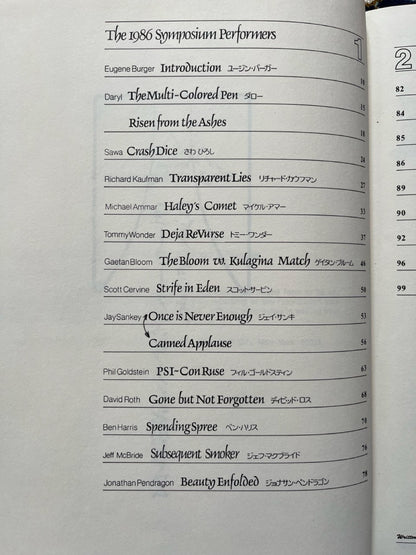 The 1986 Symposium Performers
1
Eugene Burger Introduction ユージン・バーガー 10
Daryl The Multi-Colored Pen ダロー 15
Risen from the Ashes 18
Sawa Crash Dice さわ ひろし 24
Richard Kaufman Transparent Lies リチャード・カウフマン 27
Michael Ammar Haley's Comet マイケル・アマー 33
Tommy Wonder Deja ReVurse トミー・ワンダー 37
Gaetan Bloom The Bloom vs. Kulagina Match ゲイタン・ブルーム 46
Scott Cervine Strife in Eden スコット・サービン 50
Jay Sankey Once is Never Enough ジェイ・サンキ 53
Canned Applause 56
Phil Goldstein PSI-Con Ruse フィル・ゴールドスティン 63
David Roth Gone but Not Forgotten ディビッド・ロス 68
Ben Harris Spending Spree ベン・ハリス 75
Jeff McBride Subsequent Smoker ジェフ・マクブライド 76
Jonathan Pendragon Beauty Enfolded ジョナサン・ペンドラゴン 78
2
82
84
85
88
89
90
92
96
99
Written